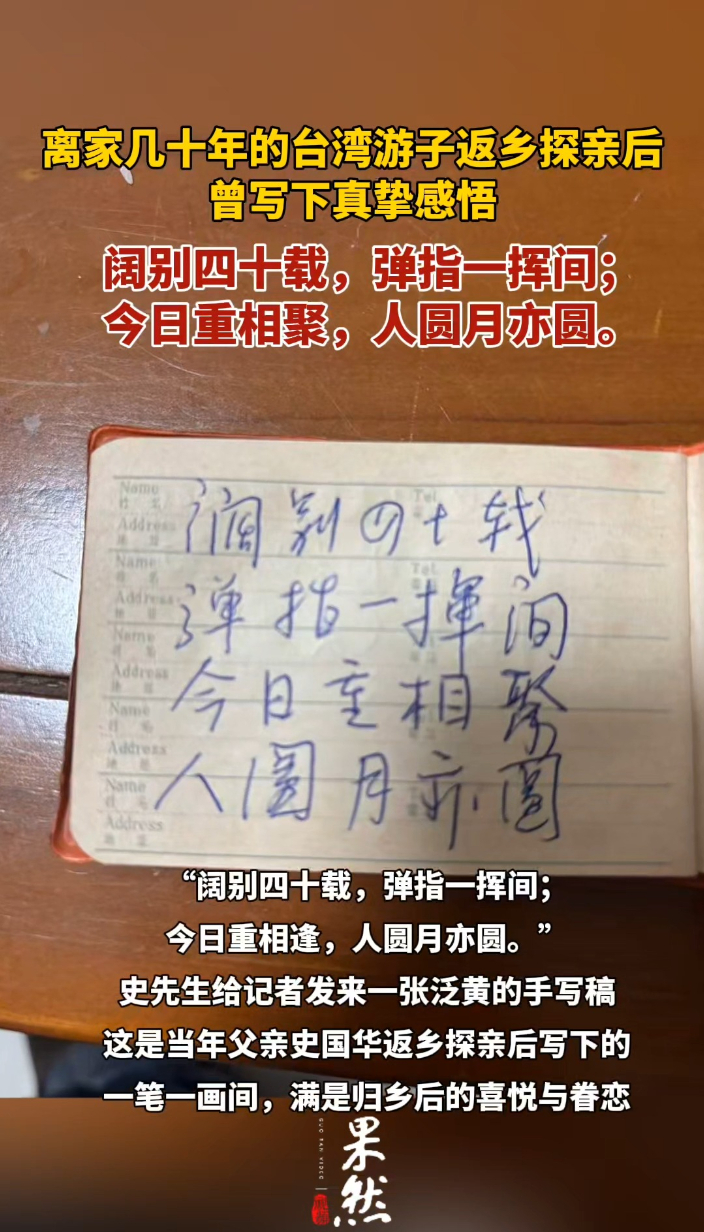 离家几十年的台湾游子返乡探亲后
曾写下真挚感悟
阔别四十载，弹指一挥间；
今日重相聚，人圆月亦圆。
Name
Tel.
Address
Name
Tel.
Address
Name
Address
Name
Address
Name
Address
阔别四十载
弹指一挥间
今日重相聚
人圆月亦圆
“阔别四十载，弹指一挥间；
今日重相逢，人圆月亦圆。”
史先生给记者发来一张泛黄的手写稿
这是当年父亲史国华返乡探亲后写下的
一笔一画间，满是归乡后的喜悦与眷恋
果然